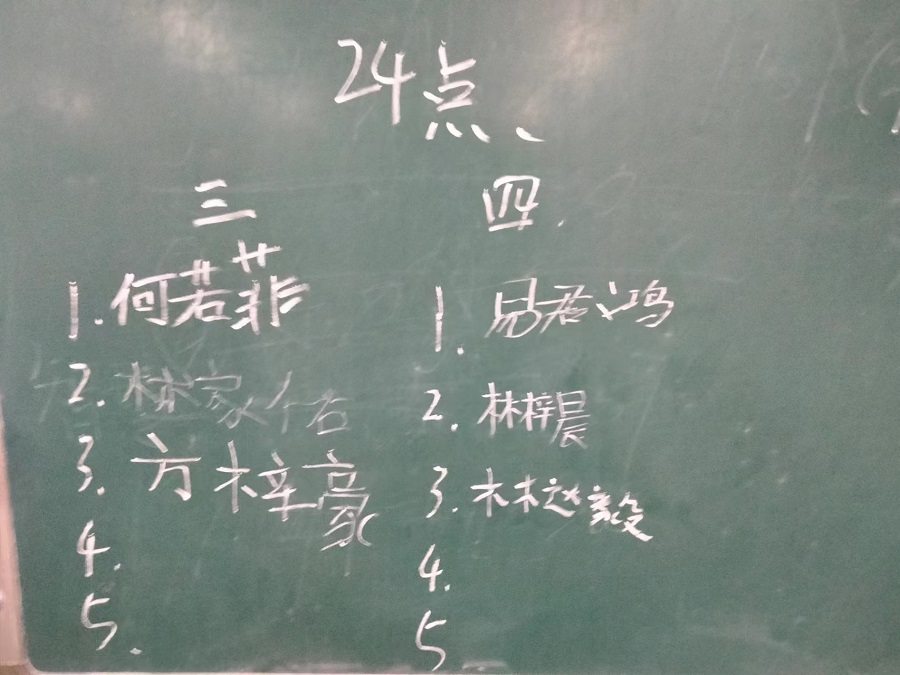 24点、
三
1.何若菲
2.林家
3.方梓豪
4.
5.
四.
1.易君鸿
2.林梓晨
3.林赵毅
4.
5